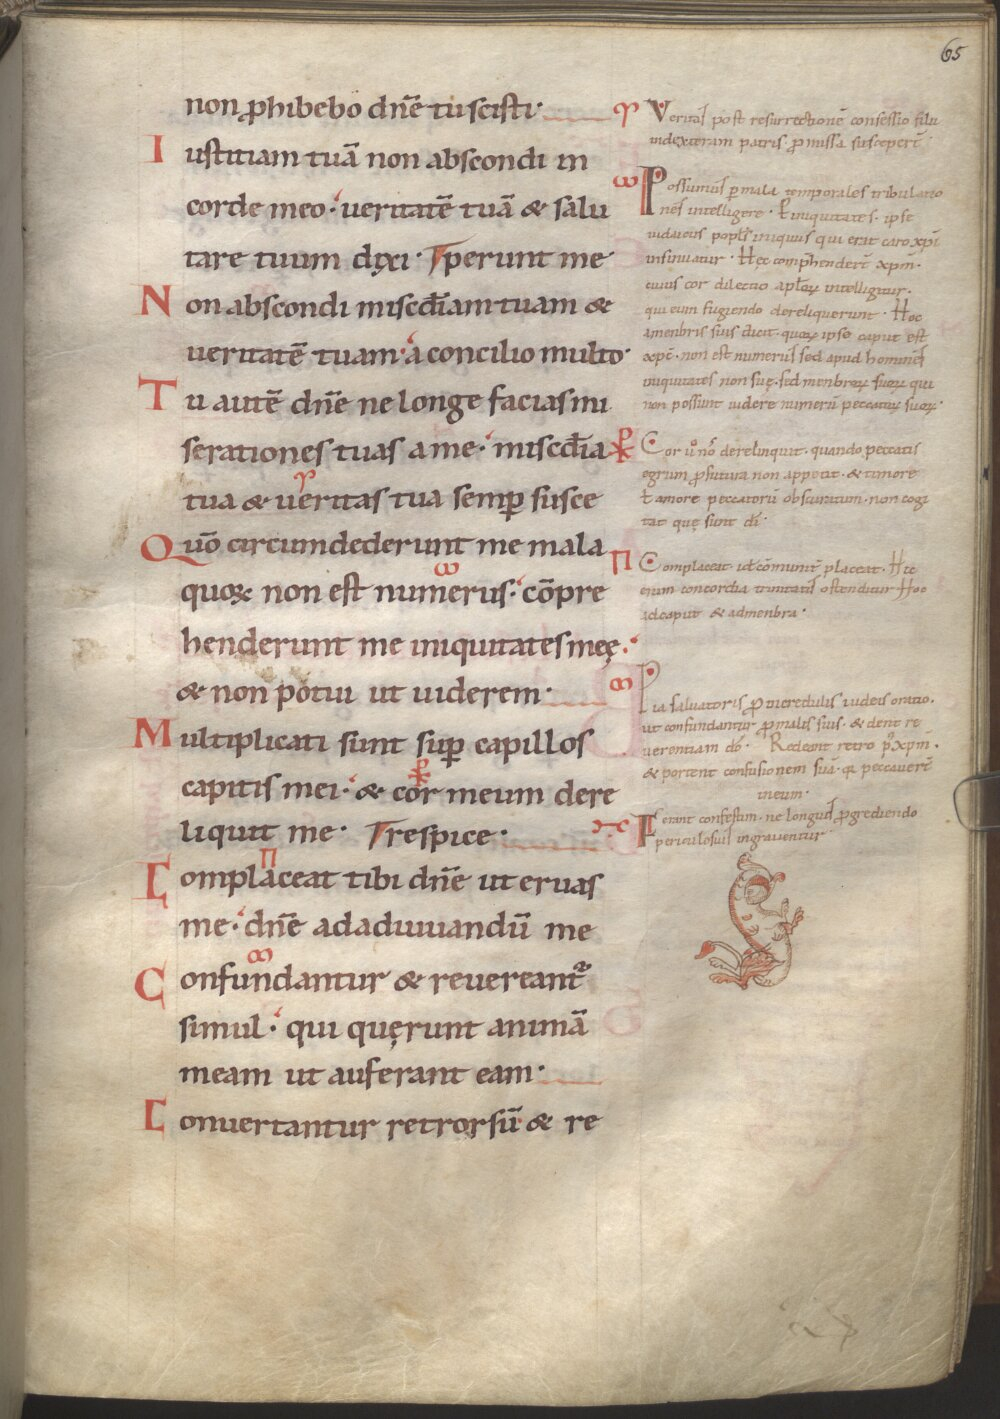 65
non ꝓhibebo dn̄e tu scisti·
Iustitiam tuā non abscondi in
corde meo· ueritatē tuā & salu
tare tuum dixi· perunt me
Non abscondi misc̄diam tuam &
ueritatē tuam· a concilio multo·
Tu autē dn̄e ne longe facias mi
serationes tuas a me· misc̄dia
tua & ueritas tua semꝑ susce
Quō circumdederunt me mala
quoꝝ non est numerus· cōpre
henderunt me iniquitates meę·
& non potui ut uiderem·
Multiplicati sunt suꝑ capillos
capitis mei· & cor meum dere
liquit me· respice·
Complaceat tibi dn̄e ut eruas
me· dn̄e ad adiuuandū me
Confundantur & reuereant᷑
simul· qui quęrunt animā
meam ut auferant eam·
Conuertantur retrorsū & re
Veritas post resurrectionē confessio filii
in dexteram patris ꝓmissa suscepert̄
Possumus ꝑ mala temporales tribulatio
nes intelligere· ł iniquitates· ipse
iudaicus popl̄s iniquus qui erat caro xp̄i
insinuatur· Hęc comp̄hendert̄ xp̄m·
cuius cor dilectio apl̄oꝝ intelligitur·
qui eum fugiendo dereliquerunt· Hoc
a menbris suis dicit· quoꝝ ipse caput est
xp̄c· non est numerus sed apud homines
iniquitates non suę· sed menbroꝝ suoꝝ qui
non possunt uidere numerū peccatoꝝ suoꝝ·
Cor ū nr̄o derelinquit· quando peccatis
egrum ꝓfutura non appetit· & timore
ł amore peccatorū obscuratum· non cogi
tat quę sunt dī·
Complaceat id ē cōmunit̄ placeat· Hic
enim concordia trinitatis ostenditur Hoc
ad caput & ad menbra·
Pia saluatoris ꝓ incredulis iudeis oratio·
ut confundantur ꝓ malis suis· & dent re
uerentiam dō· Redeant retro xp̄m·
& portent confusionem suā· qi peccauert̄
in eum·
Ferant confestim· ne longius ꝓgrediendo
periculosius ingrauentur